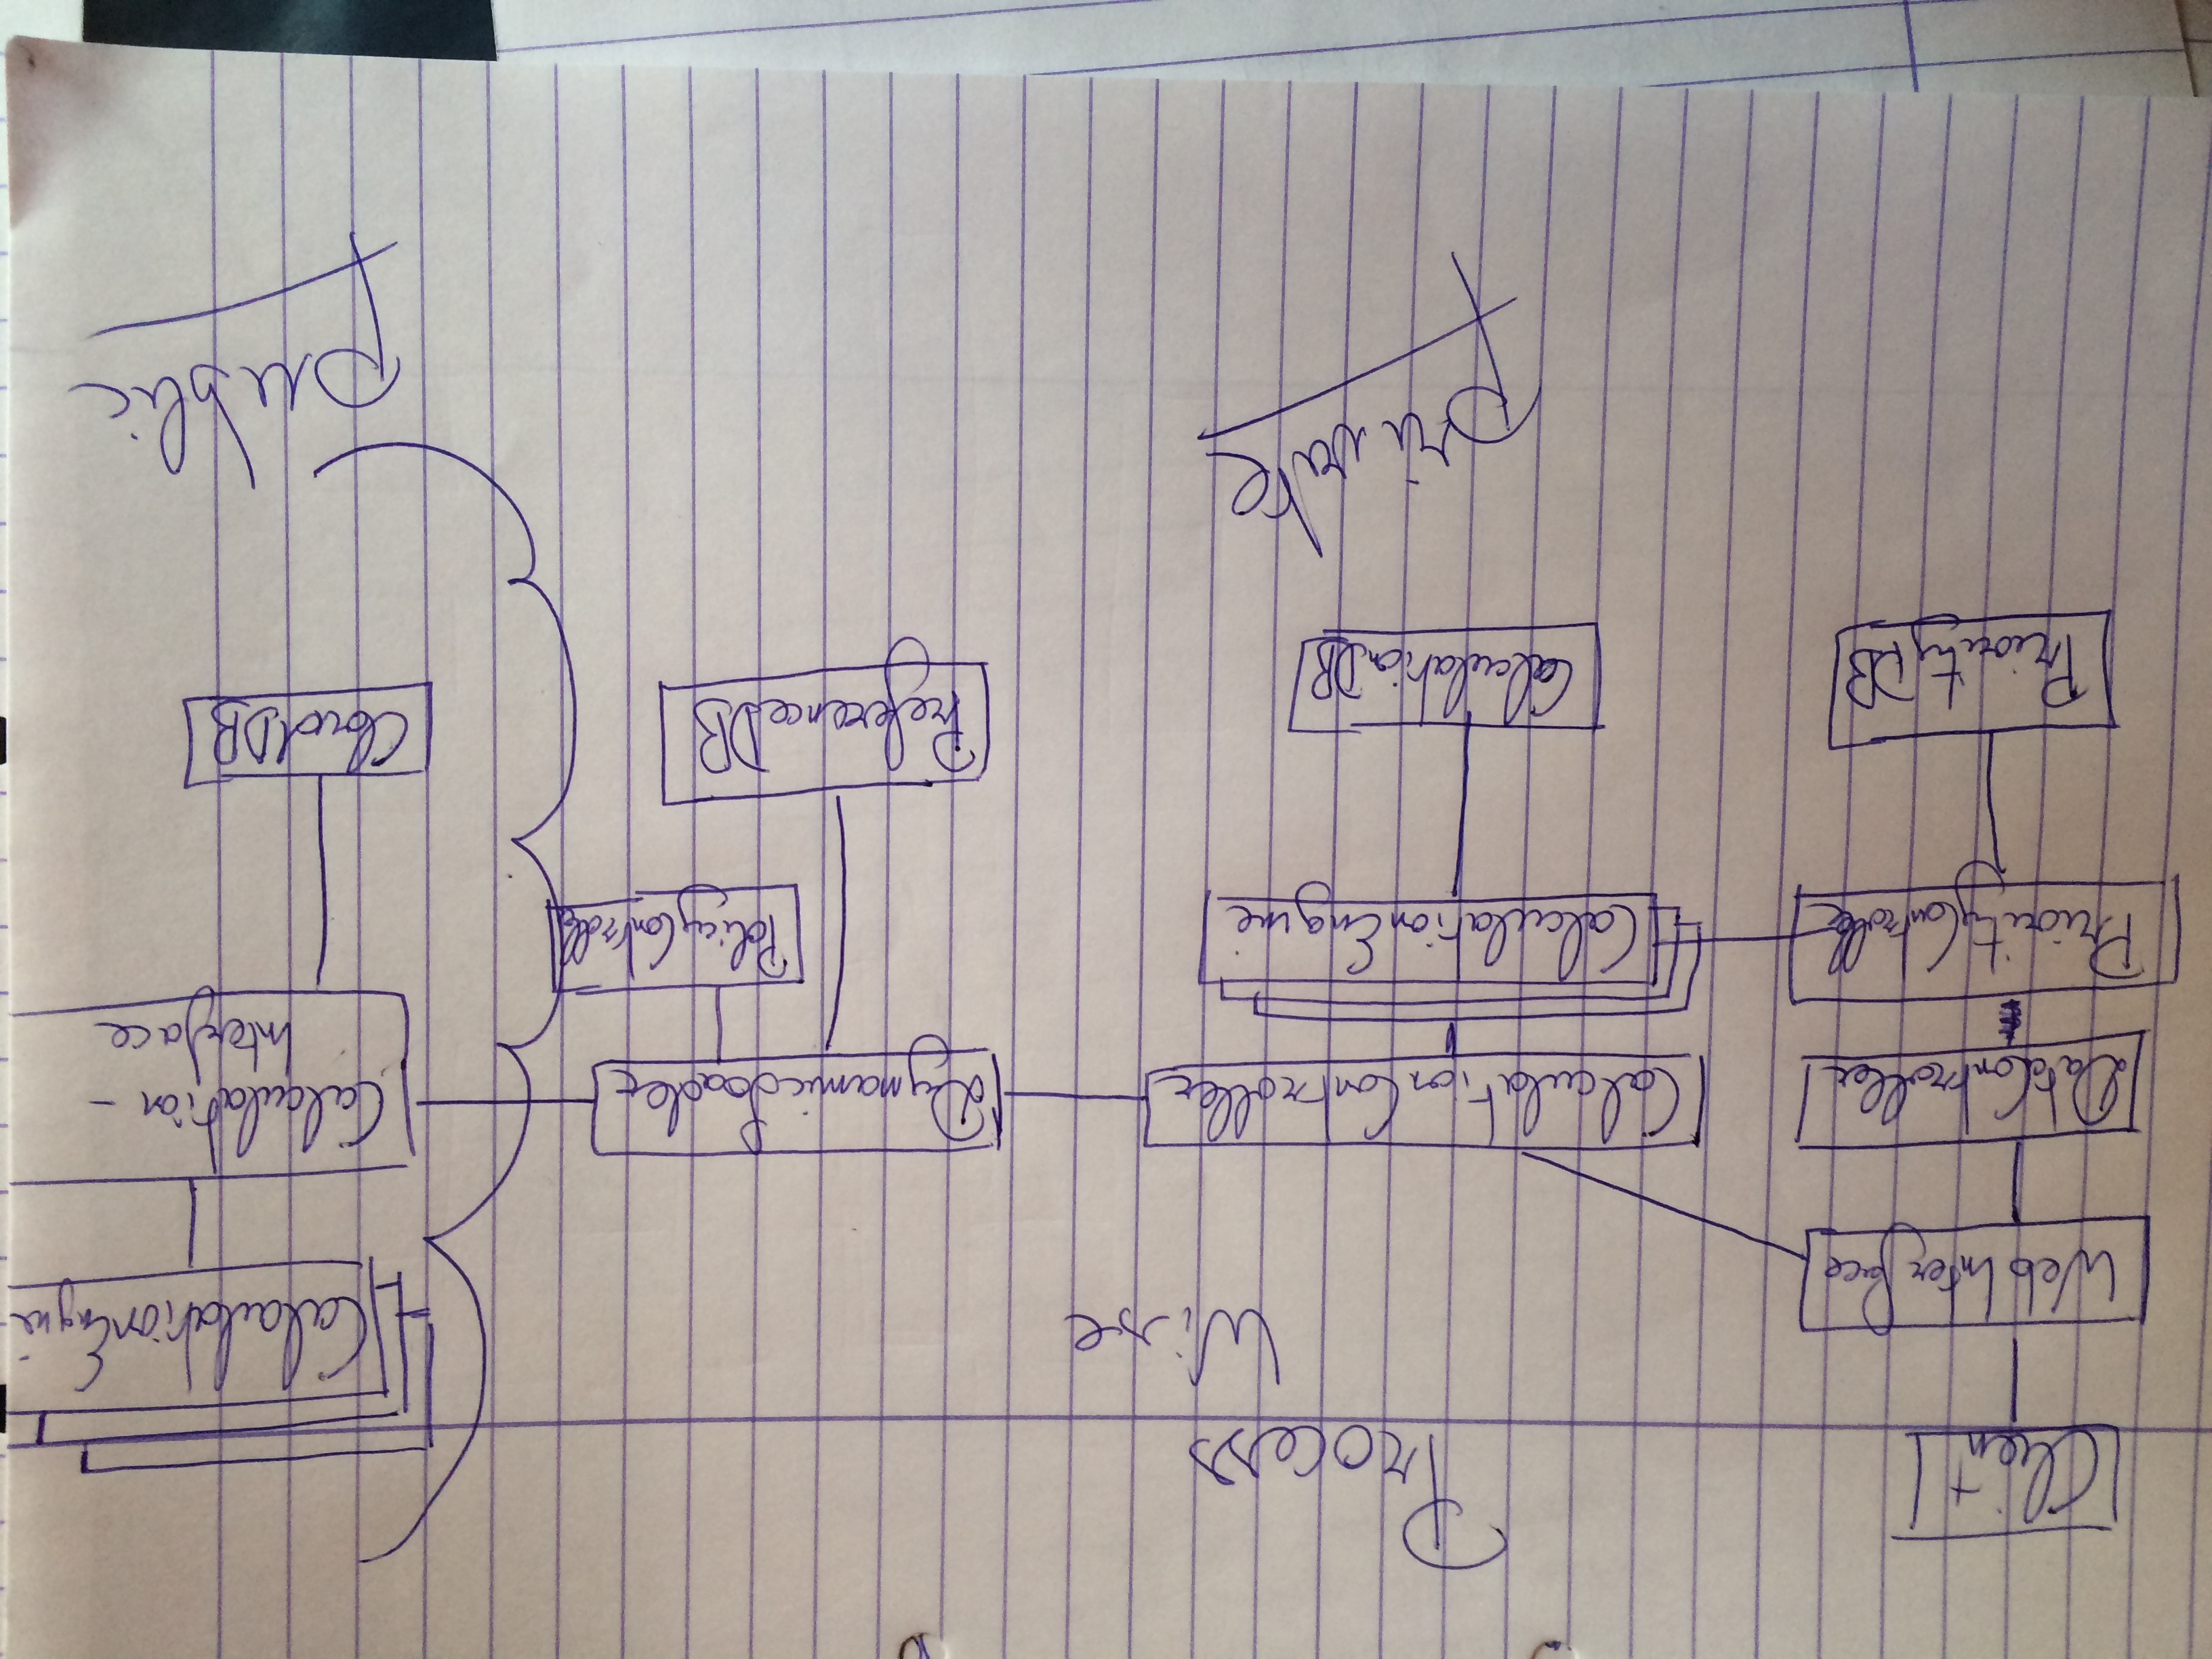 Process
Wise
Client
WebInterface
DataController
PriorityController
PriorityDB
CalculationController
CalculationEngine
CalculationDB
DynamicLoader
PolicyController
PreferenceDB
CalculationEngine
Calculation-
Interface
CloudDB
Private
Public